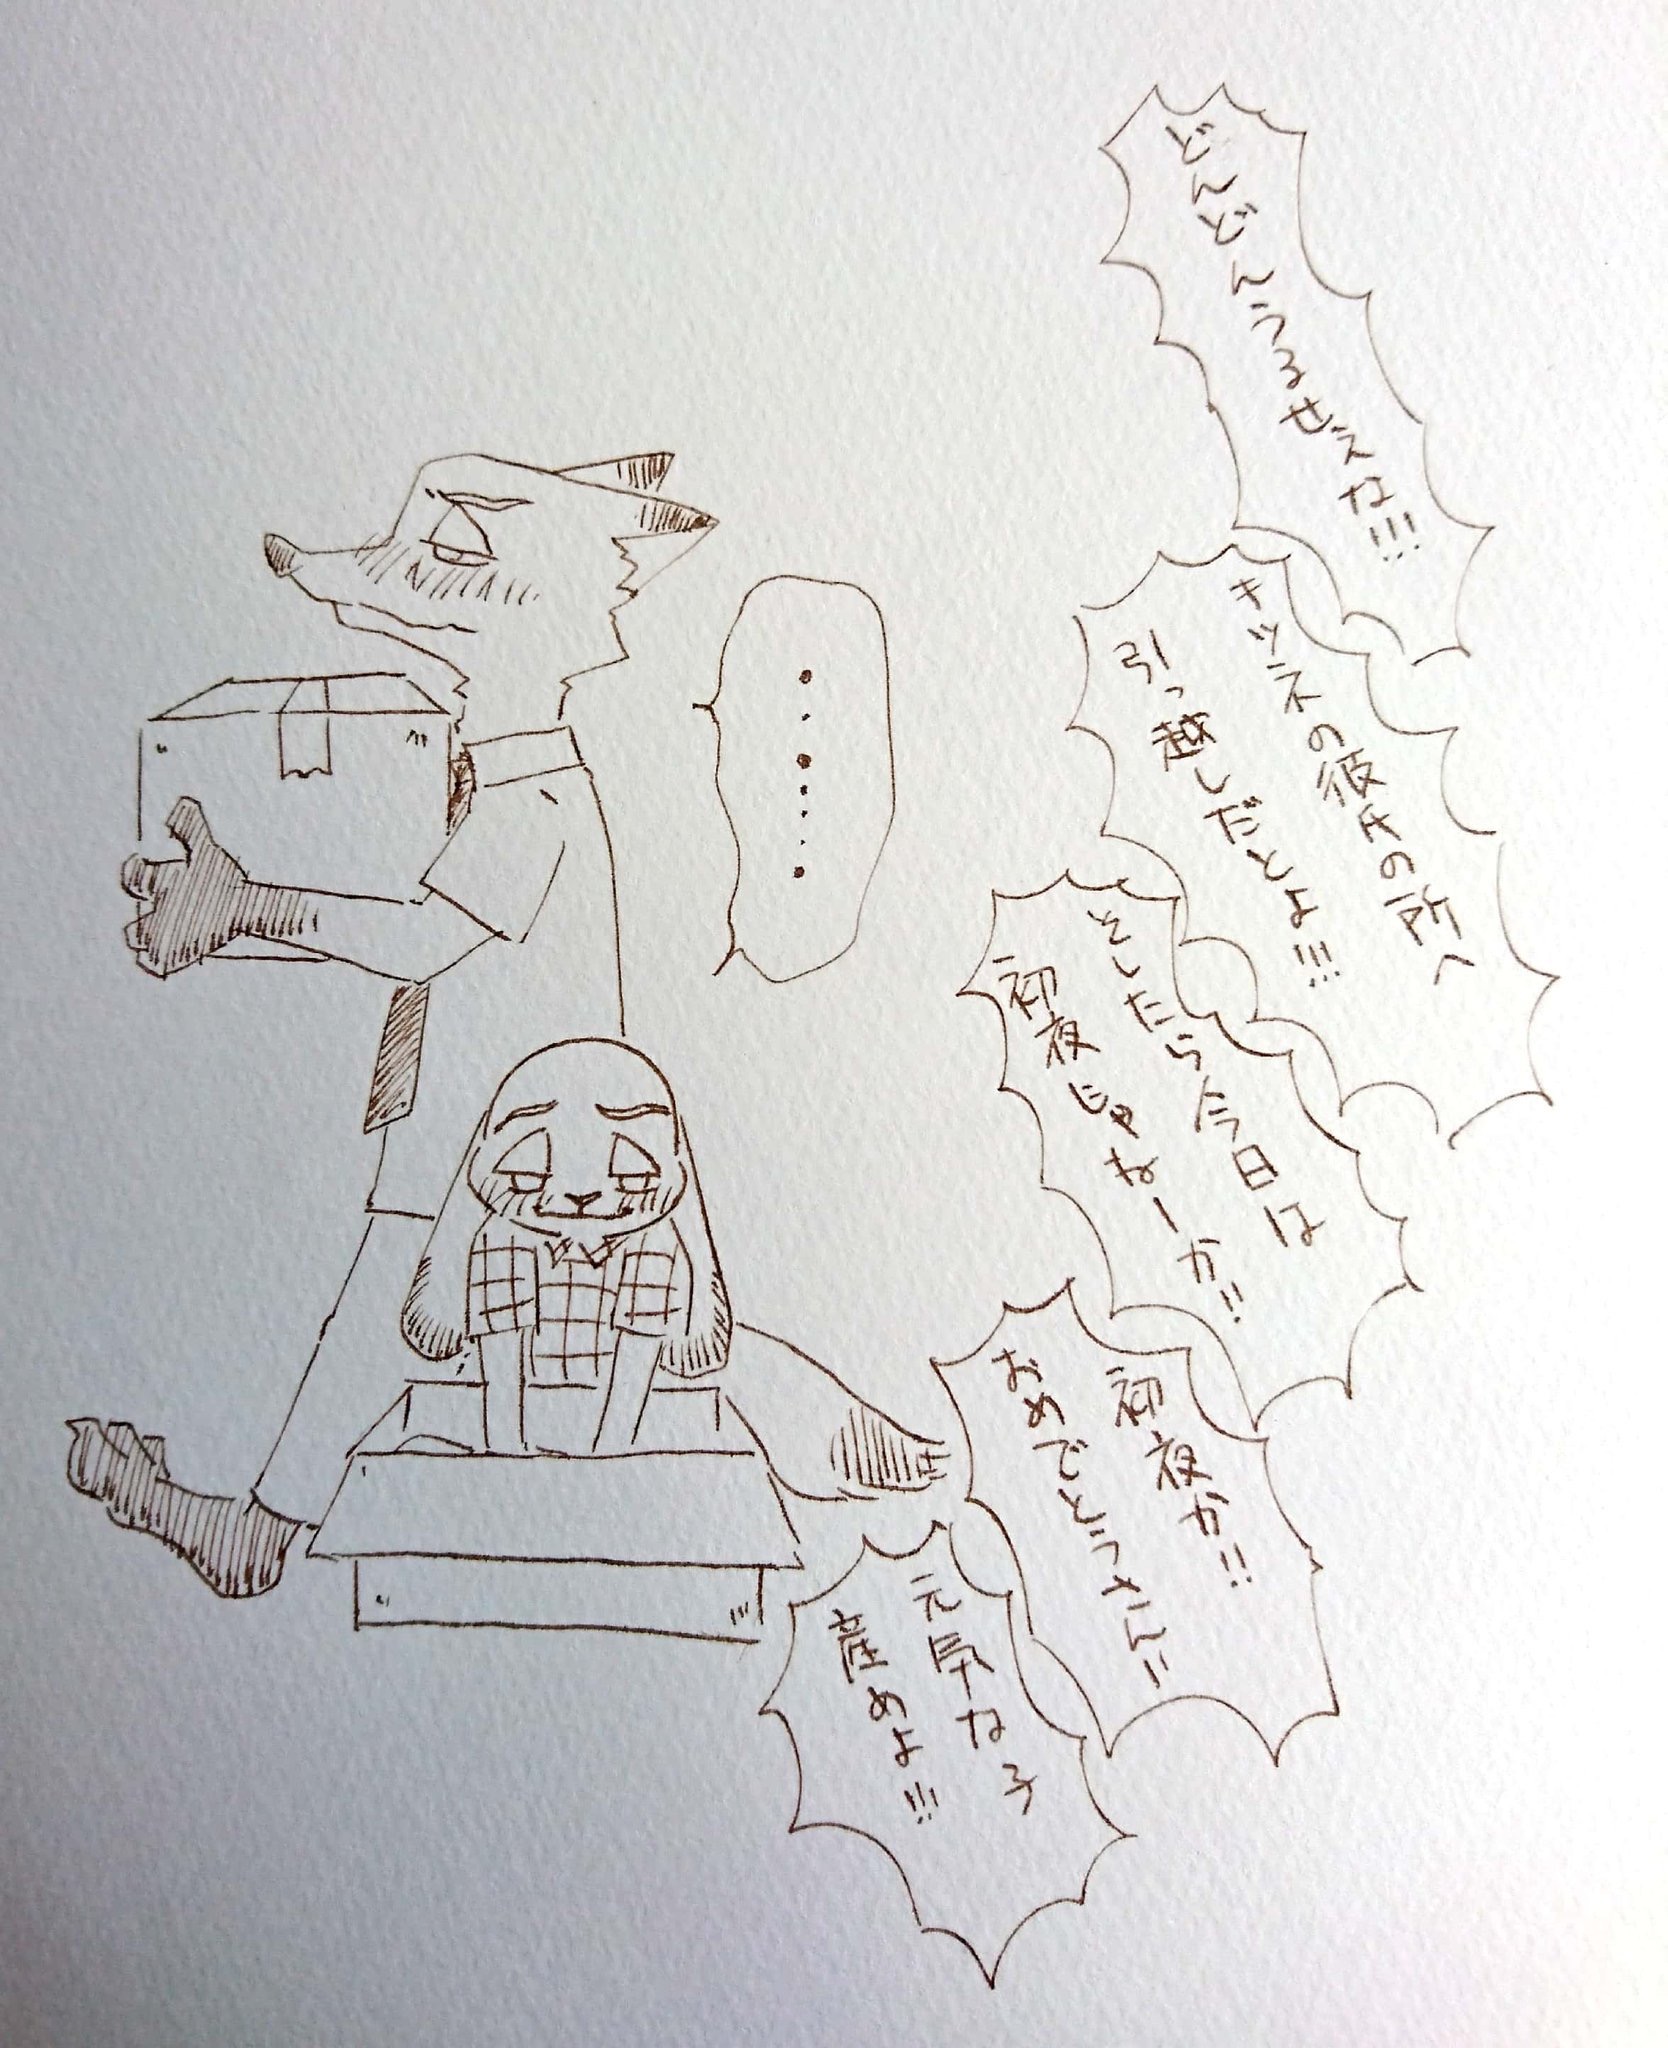 どんどんうるせぇな!!!
キツネの彼氏の所へ
引っ越しだとよ!!!
そしたら今日は
初夜じゃねーか!!
初夜か!!
おめでとうさん!!
元気な子
産めよ!!!
・・・・・・・